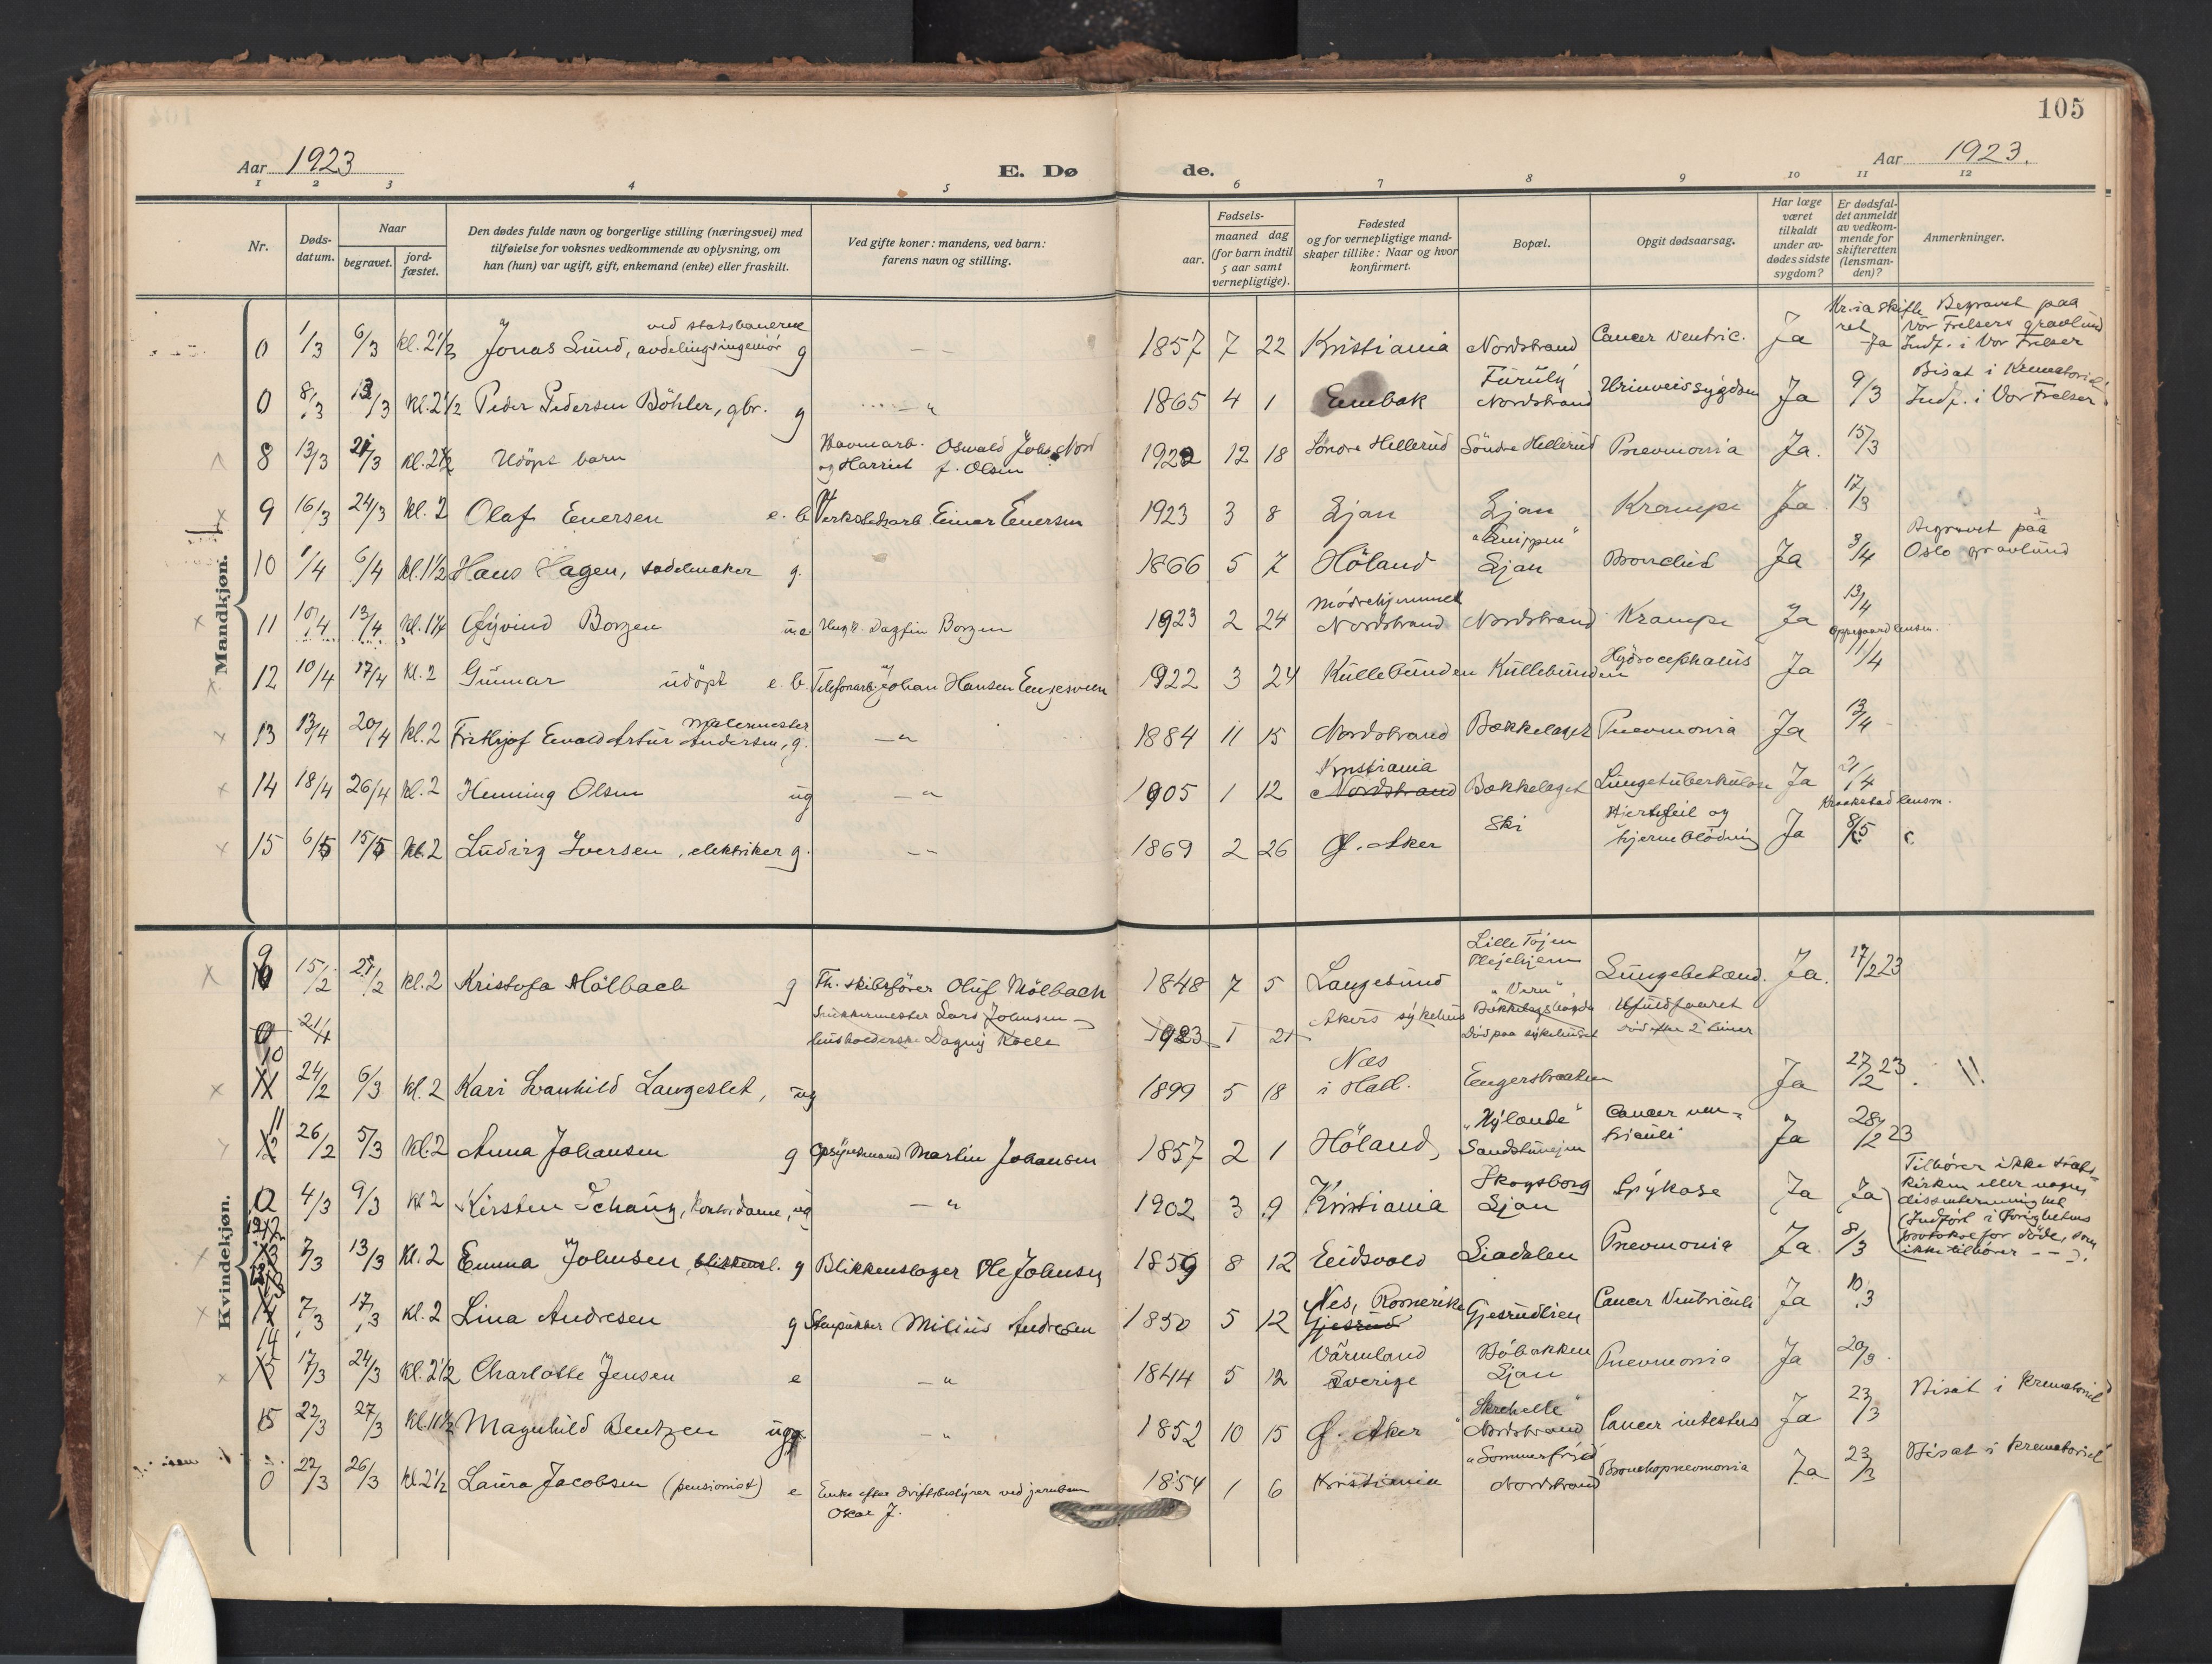 105
Aar 1923
E. Døde.
Aar 1923.
1 2 3 4 5 6 7 8 9 10 11 12
Nr.
Døds-datum.
Naar
begravet.
jord-fæstet.
Den dødes fulde navn og borgerlige stilling (næringsvei) med
tilføielse for voksnes vedkommende av oplysning, om
han (hun) var ugift, gift, enkemand (enke) eller fraskilt.
Ved gifte koner: mandens, ved barn:
farens navn og stilling.
Fødsels-
aar.
maaned dag
(for barn indtil
5 aar samt
vernepligtige).
Fødested
og for vernepligtige mand-
skaper tillike: Naar og hvor
konfirmert.
Bopæl.
Opgit dødsaarsag.
Har læge
været
tilkaldt
under av-
dødes sidste
sygdom?
Er dødsfal-
det anmeldt
av vedkom-
mende for
skifteretten
(lensman-
den)?
Anmerkninger.
Mandkjøn.
0 1/3 6/3 kl. 2 1/2 Jonas Lund, avdelingsingeniør ved statsbanerne g — 1857 7 22 Kristiania Nordstrand Cancer Ventric. Ja Kr.ia skifteret Ja Begravet paa Vor Frelsers gravlund Indf. i Vor Frelser
0 8/3 13/3 kl. 2 1/2 Peder Pedersen Böhler, gbr. g — " 1865 4 1 Enebak Furuly Nordstrand Urinveissygdom Ja 9/3 Bisat i Krematoriet Indf. i Vor Frelser
8 13/3 21/3 kl. 2 1/2 Udöpt barn Oswald Johs Nord og Harriet f. Olsen 1922 12 18 Söndre Hellerud Söndre Hellerud Pneumonia Ja. 15/3
9 16/3 24/3 kl. 2 Olaf Enersen e. b Verkstedsarb Einar Enersen 1923 3 8 Ljan Ljan Krampe Ja 17/3
10 1/4 6/4 kl. 1 1/2 Hans Hagen, sadelmaker g. 1866 5 7 Höland Ljan Bronchit Ja 3/4 Begravet paa Oslo gravlund
11 10/4 13/4 Öyvind Borgen Dagfin Borgen 1923 2 24 Mödrehjemmet Nordstrand Nordstrand Krampe Ja 13/4
12 10/4 17/4 kl. 2 Gunnar udöpt e. b. Telefonarb. Johan Hansen Engesveen 1922 3 24 Kullebunden Kullebunden Hydrocephalus Ja Oppegaard lensm. 11/4
13 13/4 20/4 kl. 2 Frithjof Ewald Artur Andersen, malermester g. — " 1884 11 15 Nordstrand Bækkelaget Pneumonia Ja 13/4
14 18/4 26/4 kl. 2 Henning Olsen ug — " 1905 1 12 Kristiania Nordstrand Bækkelaget Lungetuberkulose Ja 21/4
15 6/5 15/5 kl. 2 Ludvig Iversen, elektriker g. — 1869 2 26 Ø. Aker Ski Hjertefeil og hjerneblödning Ja Kraakstad lensm. 8/5
Kvindekjøn.
9 15/2 21/2 kl. 2 Kristofa Mölbach g Fh. skibsförer Oluf Mölbach 1848 7 5 Langesund Lille Töjen Plejehjem Lungebetænd. Ja. 17/2 23
0 21/4 Snikkermester Lars Johnsen husholderske Dagny Kolle 1923 1 21 Akers sykehus Död paa sykehuset Ufuldbaaret död efter 2 timer
10 24/2 6/3 kl. 2 Kari Svanhild Langeslet, ug 1899 5 18 Næs i Hall. Engersbraaten Ja 27/2 23
11 26/2 5/3 kl. 2 Anna Johansen g Opsynsmand Martin Johansen 1857 2 1 Höland, "Nylænde" Cancer ventriculi Ja 28/2 23
0 4/3 9/3 kl 2 Kirsten Schaug, kontordame, ug — " 1902 3 9 Kristiania Skogsborg Ljan Ja Ja Tilhörer ikke statskirken eller nogen dissentermenighet (Indfört i Øvrighetens protokol for döde, som ikke tilhörer — —).
12 7/3 13/3 kl. 2 Emma Johnsen, blikkensl. g Blikkenslager Ole Johnsen 1859 8 12 Eidsvold Liadalen Pneumonia Ja. 8/3
13 7/3 17/3 kl. 2 Lina Andresen g Stenpukker Milius Andresen 1850 5 12 Nes, Romerike Gjesrud Gjesrudlien Cancer Ventriculi Ja 10/3
14 17/3 24/3 kl. 2 1/2 Charlotte Jensen e — " 1844 5 12 Värmland Sverige Ljan Pneumonia Ja 20/3
15 22/3 27/3 kl. 11 1/2 Magnhild Bentzen ug — " 1852 10 15 Ø. Aker Nordstrand Cancer intestus Ja 23/3 Bisat i krematoriet
0 22/3 26/3 kl 2 1/2 Laura Jacobsen (pensionist) e Enke efter driftsbestyrer ved jernbanen Oscar J. 1854 1 6 Kristiania "Sommerfryd" Nordstrand Bronchopneumonia Ja 23/3 Bisat i krematoriet